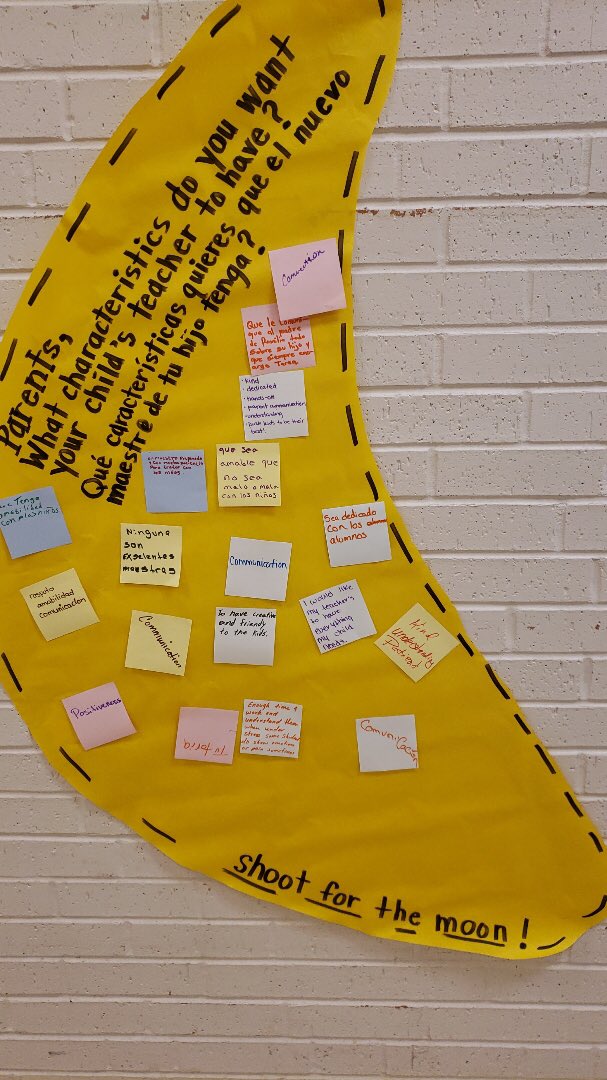 Parents,
What characteristics do you want
your child's teacher to have?
Qué características quieres que el nuevo
maestr@ de tu hijo tenga?
Que le
que al padre
de familia todo
sobre su hijo y
que siempre
Tarea
·Kind
·dedicated
·hands-on
·parent communication
·understanding
·push kids to be their
best!
y con mucha paciencia
para tratar con
los niños
que sea
amable que
no sea
malo o mala
con los niños
Tenga
amabilidad
con
Ninguna
son
Exselentes
maestras
Communication
Sea dedicado
con los
alumnos
respeto
amabilidad
comunicación
Communication
To have creative
and friendly
to the kids.
I would like
my teacher's
to have
everything
my child
needs.
Kind
Understanding
Patient
Positiveness
Tutoria
Enough time 4
work and
understand them
when under
stress some student
do show emotion
or pain sometimes
Comunicación
shoot for the moon!